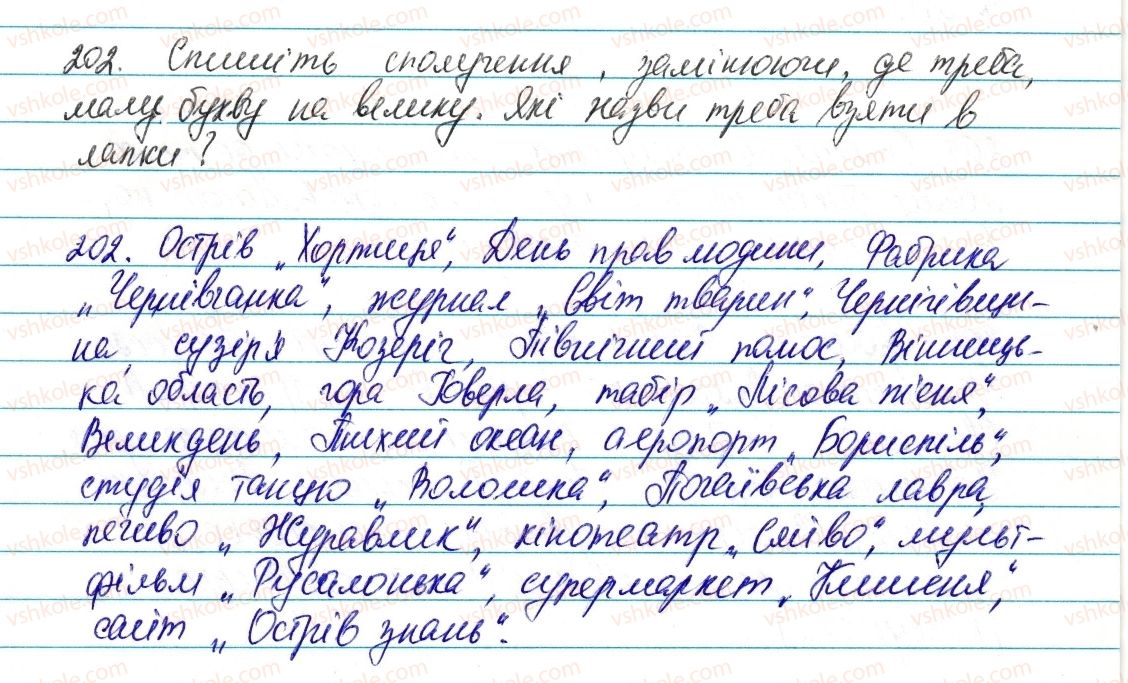 202. Спишіть сполучення, замінюючи, де треба,
малу букву на велику. Які назви треба взяти в
лапки?
202. Острів „Хортиця“, День прав людини, Фабрика
„Чернівчанка“, журнал „Світ тварин“, Чернігівщи-
на, сузір'я Козеріг, Північний полюс, Вінниць-
ка область, гора Говерла, табір „Лісова пісня“,
Великдень, Тихий океан, аеропорт „Бориспіль“,
студія танцю „Волошка“, Почаївська лавра,
печиво „Журавлик“, кінотеатр „Сяйво“, мульт-
фільм „Русалонька“, супермаркет „Кишеня“,
сайт „Острів знань“.